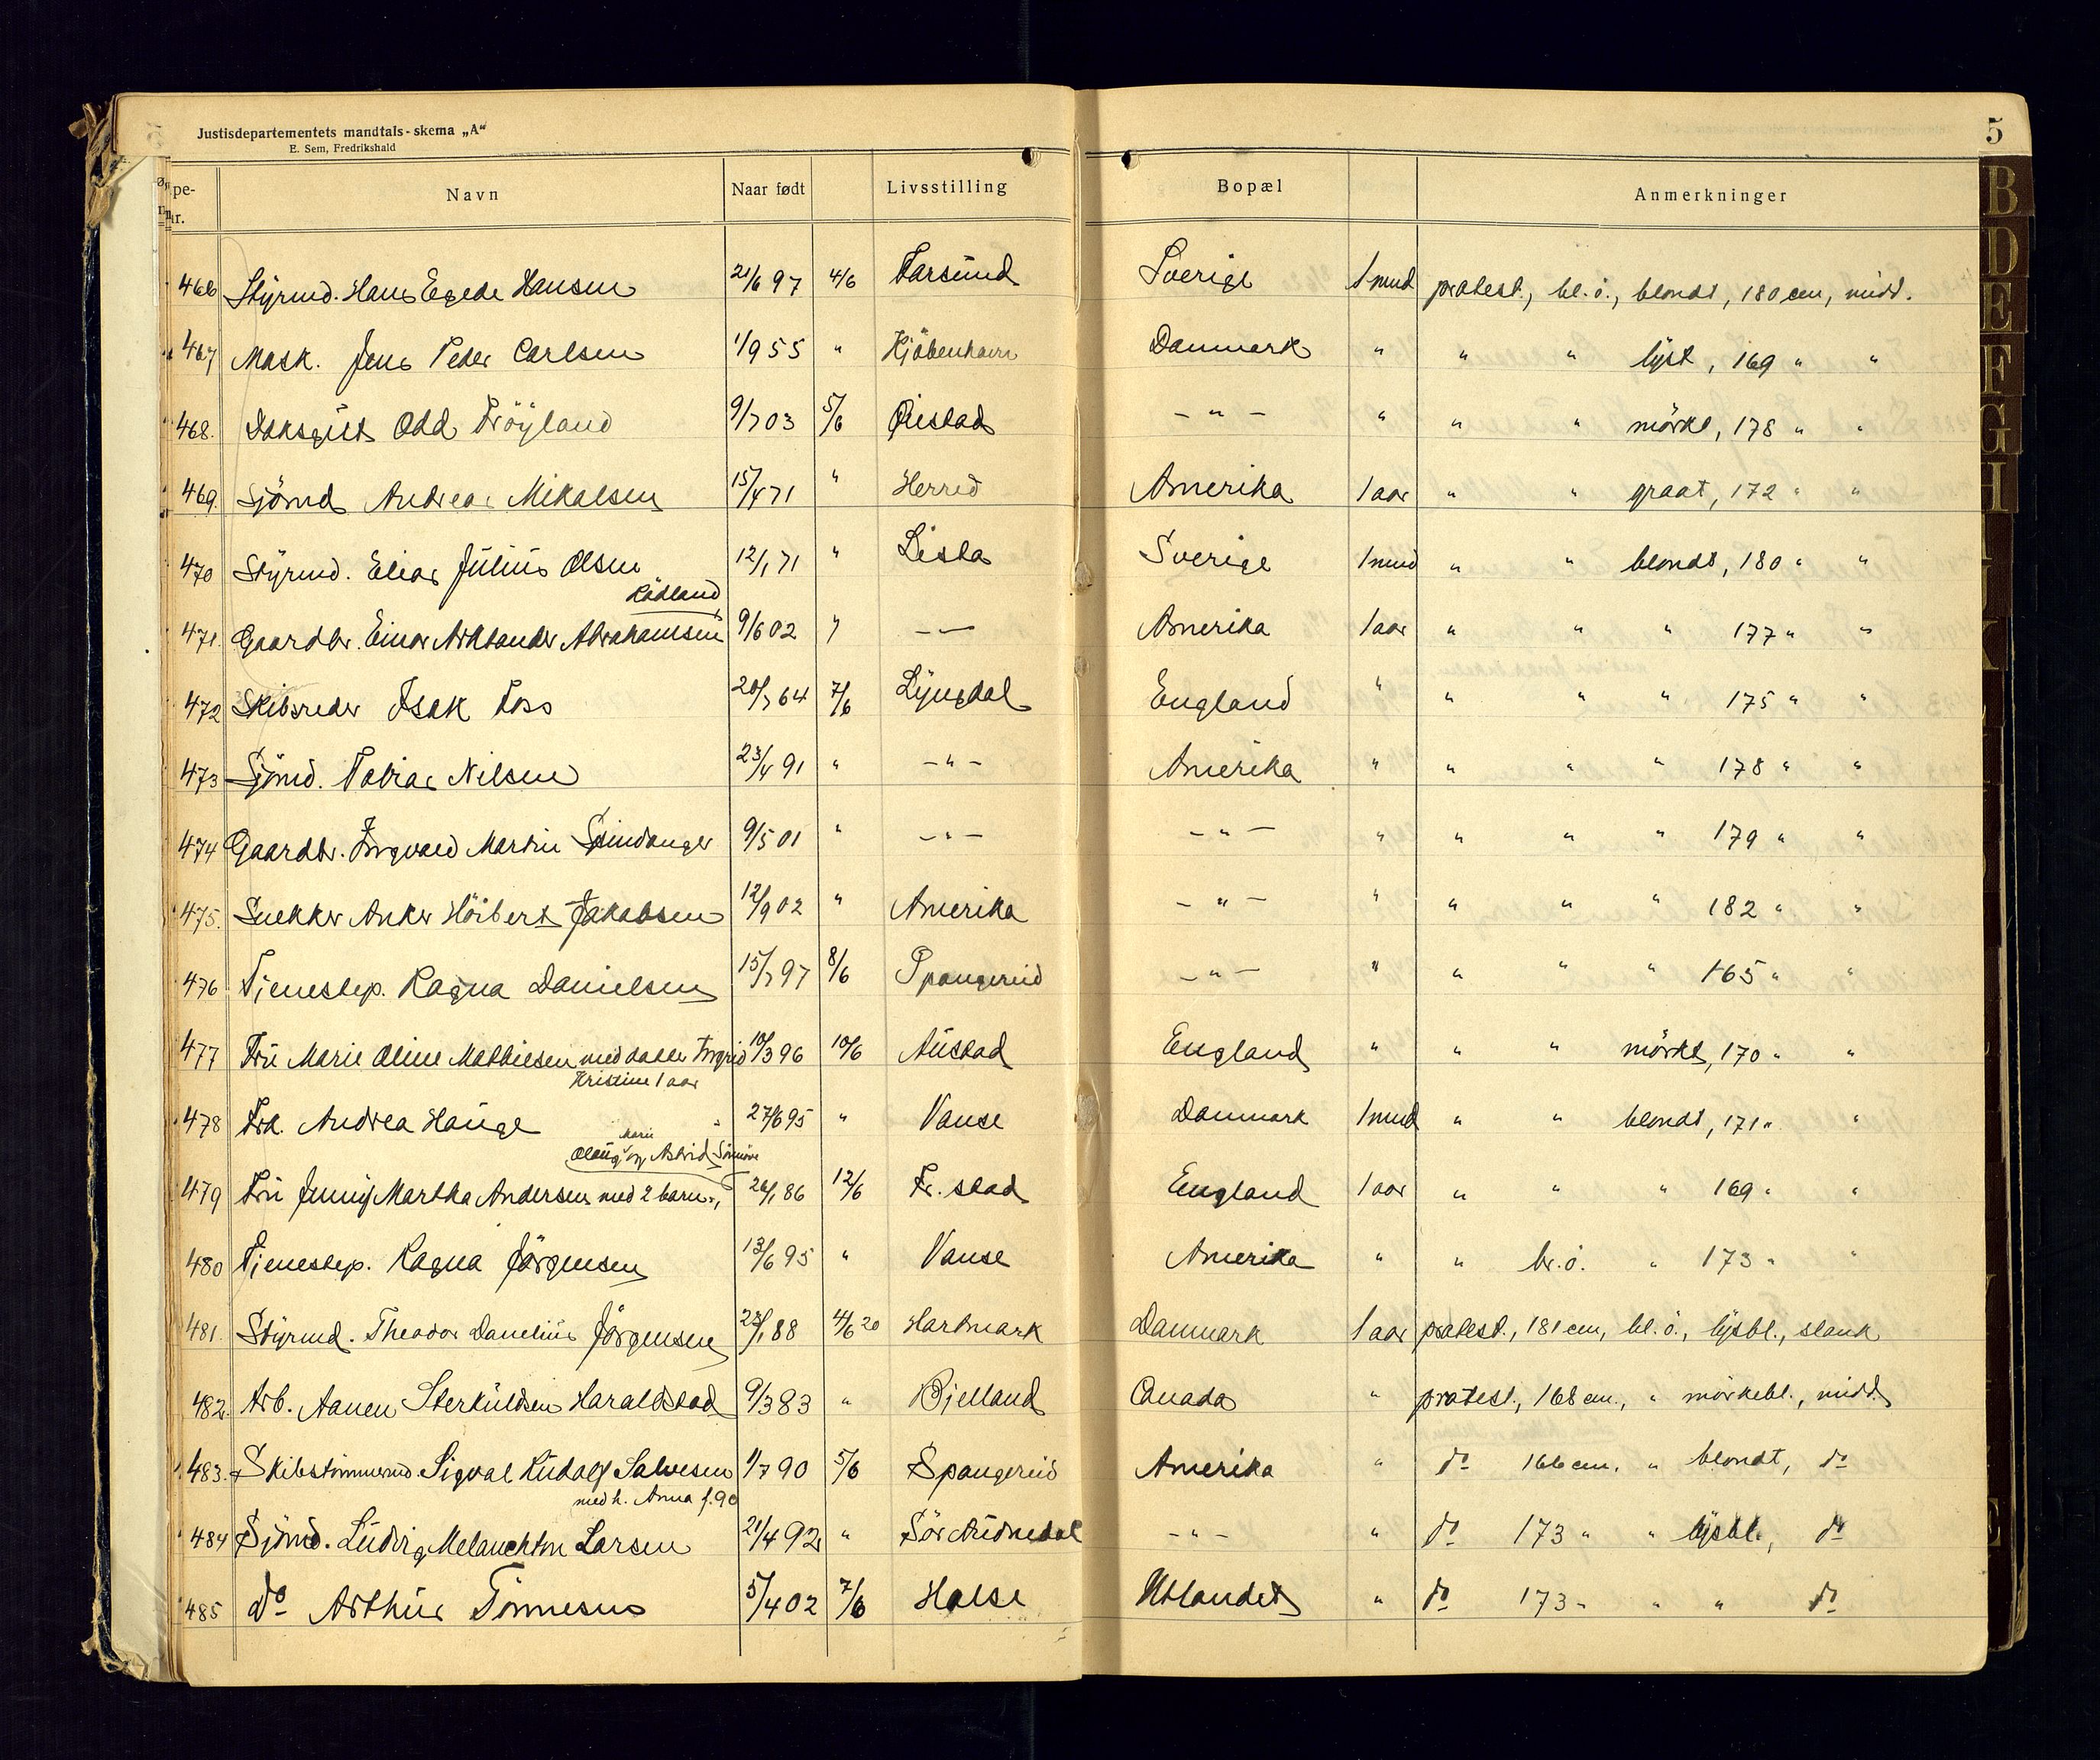 Justisdepartementets mandtals-skema „A“
E. Sem, Fredrikshald
5
pe-nr. Navn Naar født Livsstilling Bopæl Anmerkninger
466 Styrmd. Hans Egede Hansen 21/6 97 4/6 Farsund Sverige 1 mnd protest., bl. ö., blondt, 180 cm, midd.
467 Mask. Jens Peder Carlsen 1/9 55 " Kjöbenhavn Danmark " " " lyst, 169 " "
468. Odd Fröyland 9/7 03 5/6 Øiestad - " - " " " mörkt, 178 " "
469. Sjömd Andreas Mikalsen 15/4 71 " Herred Amerika 1 aar " " graat, 172 " "
470 Styrmd. Elias Julius Olsen 12/1 71 " Lista Sverige 1 mnd " " blondt, 180 " "
Rödland
471. Gaardbr. Einar Abrahamsen 9/6 02 " - " - Amerika 1 aar " " " 177 " "
472 Skibsreder Isak Foss 20/7 64 7/6 Lyngdal England " " " " 175 " "
473 Sjömd. Tobias Nilsen 23/4 91 " - " - Amerika " " " " 178 " "
474 Gaardbr. Ingvald Martin 9/5 01 " - " - - " - " " " " 179 " "
475. Snekker Anker Höibert Jakobsen 12/9 02 " Amerika - " - " " " " 182 " "
476 Tjenestep. Ragna Danielsen 15/7 97 8/6 Spangereid - " - " " " " 165 " "
477 Fru Marie Oline Mathiesen med datter Ingrid 10/3 96 10/6 Austad England " " " mörkt, 170 " "
Kristine 1 aar
478 Frk. Andrea Hauge 27/6 95 " Vanse Danmark 1 mnd " " blondt, 171 " "
Marie
Olaug og Astrid
479 Fru Jenny Martha Andersen med 2 barn, 26/1 86 12/6 Fr. stad England 1 aar " " " 169 " "
480 Tjenestep. Ragna Jörgensen 13/6 95 " Vanse Amerika " " br. ö. " 173 " "
481. Styrmd. Theodor Danelius Jörgensen 23/1 88 4/6 20 Hartmark Danmark 1 aar protest., 181 cm, bl. ö., lysbl., slank
482. Arb. Aanen Sterkuldsen Haraldstad 9/3 83 " Bjelland Canada " protest., 168 cm., " mörkebl., midd.
483. Skibstömmermd. Sigval Rudolf Salvesen 1/7 90 5/6 Spangereid Amerika " do 166 cm. " blondt, do
med h. Anna f. 90
484 Sjömd. Ludvig Melanchton Larsen 21/4 92 " Sör Audnedal - " - " do 173 " " lysbl., do
485 do Arthur Tönnesen 5/4 02 7/6 Halse Utlandet " do 173 " " " do
B
D
E
F
G
H
K